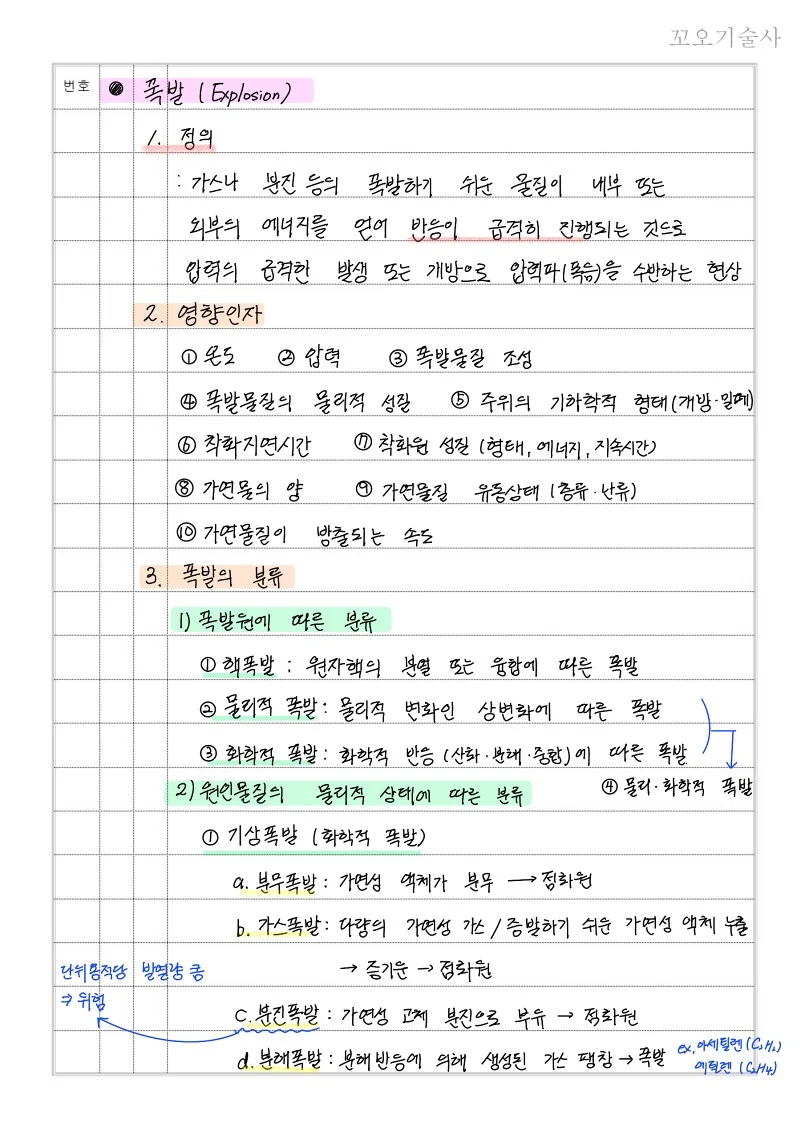 꼬오기술사
번호 ● 폭발 (Explosion)
1. 정의
: 가스나 분진 등의 폭발하기 쉬운 물질이 내부 또는
외부의 에너지를 얻어 반응이 급격히 진행되는 것으로
압력의 급격한 발생 또는 개방으로 압력파(폭음)을 수반하는 현상
2. 영향인자
① 온도 ② 압력 ③ 폭발물질 조성
④ 폭발물질의 물리적 성질 ⑤ 주위의 기하학적 형태(개방·밀폐)
⑥ 착화지연시간 ⑦ 착화원 성질 (형태, 에너지, 지속시간)
⑧ 가연물의 양 ⑨ 가연물질 유동상태 (층류·난류)
⑩ 가연물질이 방출되는 속도
3. 폭발의 분류
1) 폭발원에 따른 분류
① 핵폭발 : 원자핵의 분열 또는 융합에 따른 폭발
② 물리적 폭발 : 물리적 변화인 상변화에 따른 폭발
③ 화학적 폭발 : 화학적 반응 (산화·분해·중합)에 따른 폭발
④ 물리·화학적 폭발
2) 원인물질의 물리적 상태에 따른 분류
① 기상폭발 (화학적 폭발)
a. 분무폭발 : 가연성 액체가 분무 → 점화원
b. 가스폭발 : 다량의 가연성 가스 / 증발하기 쉬운 가연성 액체 누출
→ 증기운 → 점화원
단위용적당 발열량 큼
⇒ 위험
c. 분진폭발 : 가연성 고체 분진으로 부유 → 점화원
d. 분해폭발 : 분해반응에 의해 생성된 가스 팽창 → 폭발
ex. 아세틸렌 (C₂H₂)
에틸렌 (C₂H₄)